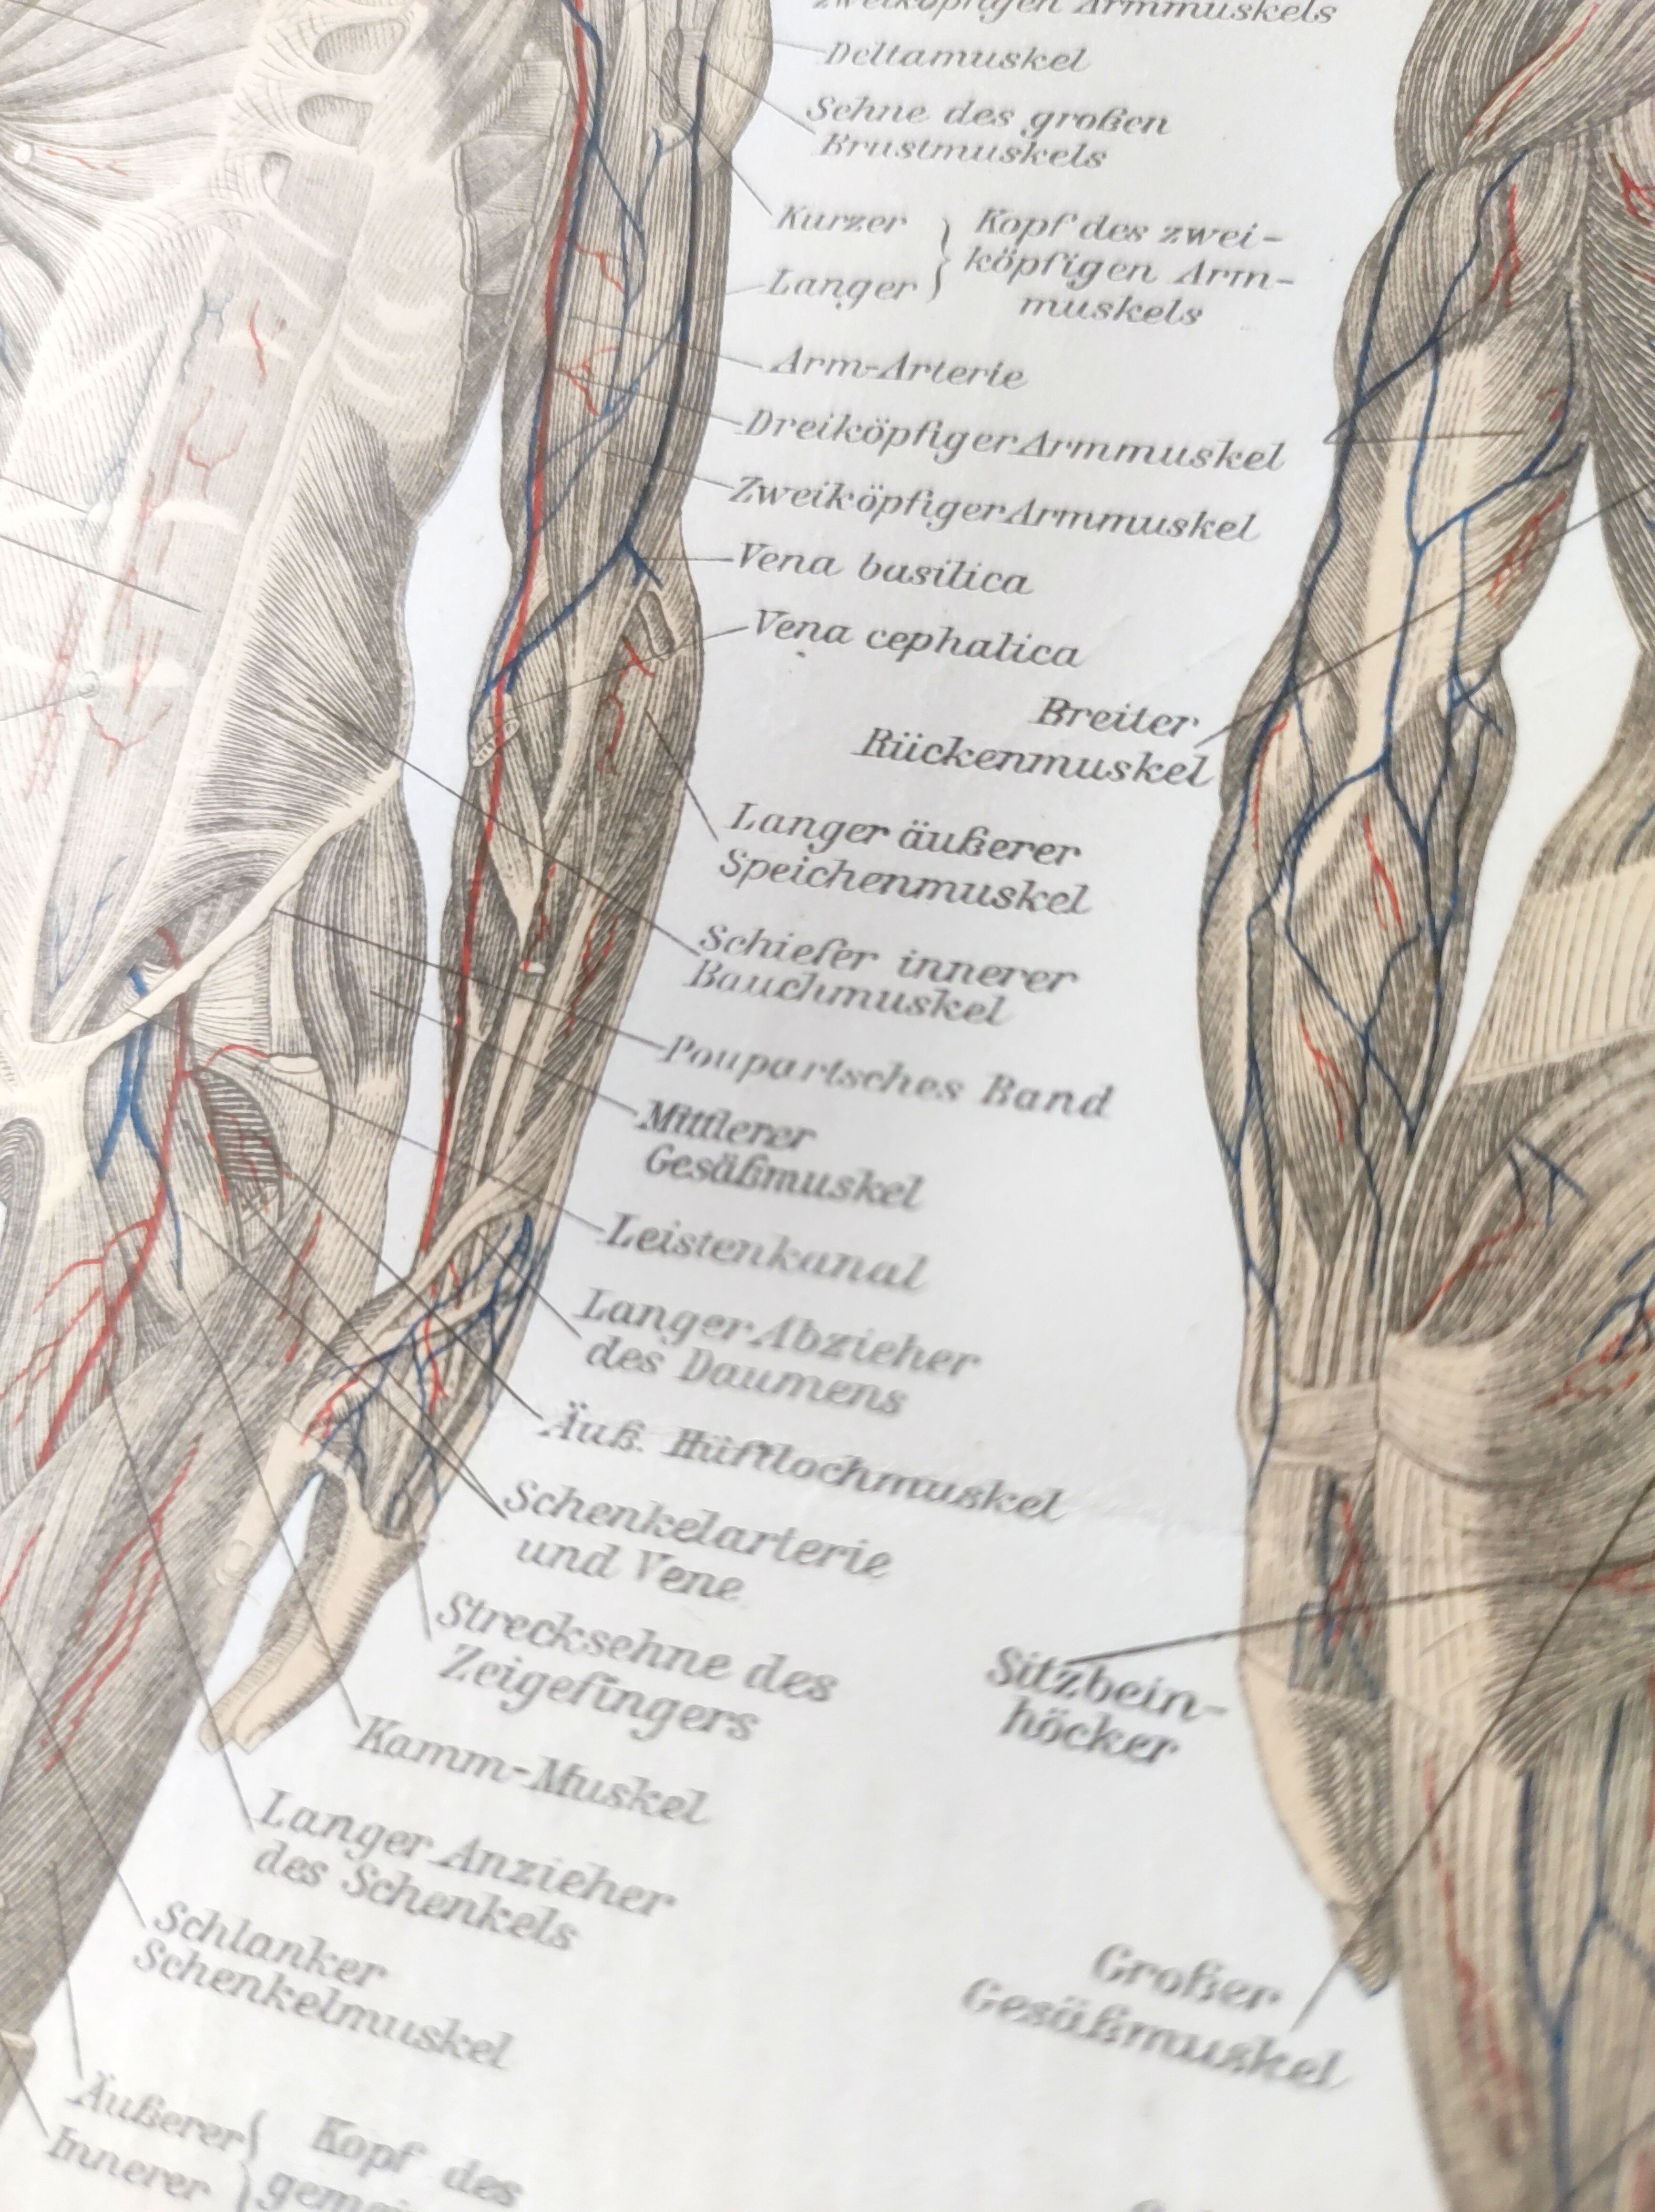 zweiköpfigen Armmuskels
Deltamuskel
Sehne des großen
Brustmuskels
Kurzer
Langer
Kopf des zwei-
köpfigen Arm-
muskels
Arm-Arterie
Dreiköpfiger Armmuskel
Zweiköpfiger Armmuskel
Vena basilica
Vena cephalica
Breiter
Rückenmuskel
Langer äußerer
Speichenmuskel
Schiefer innerer
Bauchmuskel
Poupartsches Band
Mittlerer
Gesäßmuskel
Leistenkanal
Langer Abzieher
des Daumens
Äuß. Hüftlochmuskel
Schenkelarterie
und Vene
Strecksehne des
Zeigefingers
Sitzbein-
höcker
Kamm-Muskel
Langer Anzieher
des Schenkels
Schlanker
Schenkelmuskel
Großer
Gesäßmuskel
Äußerer
Innerer
Kopf des